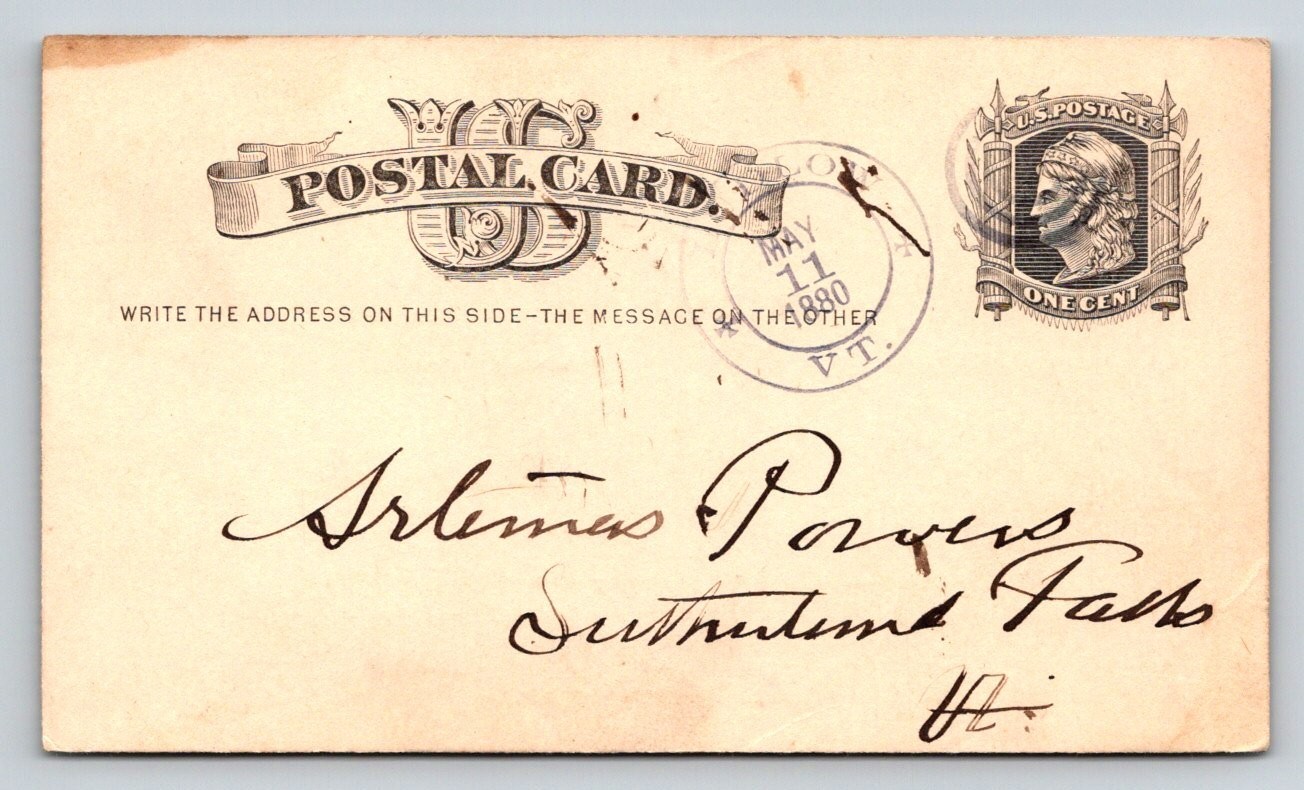 US
POSTAL CARD.
WRITE THE ADDRESS ON THIS SIDE-THE MESSAGE ON THE OTHER
U.S. POSTAGE
ONE CENT
MAY
11
1880
VT.
Artemas Powers
Sutherland Falls
Vt.